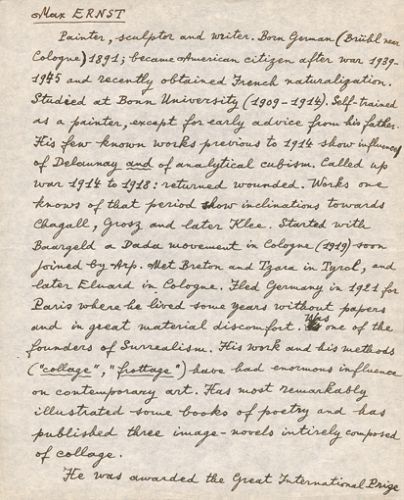 Max ERNST
Painter, sculptor and writer. Born German (Brühl near
Cologne) 1891; became American citizen after war 1939-
1945 and recently obtained French naturalization.
Studied at Bonn University (1909-1914). Self-trained
as a painter, except for early advice from his father.
His few known works previous to 1914 show influences
of Delaunay and of analytical cubism. Called up
war 1914 to 1918: returned wounded. Works one
knows of that period show inclinations towards
Chagall, Grosz and later Klee. Started with
Baargeld a Dada movement in Cologne (1919) soon
joined by Arp. Met Breton and Tzara in Tyrol, and
later Eluard in Cologne. Fled Germany in 1921 for
Paris where he lived some years without papers
and in great material discomfort. Was one of the
founders of Surrealism. His work and his methods
("collage", "frottage") have had enormous influence
on contemporary art. Has most remarkably
illustrated some books of poetry and has
published three image-novels intirely composed
of collage.
He was awarded the Great International Prize